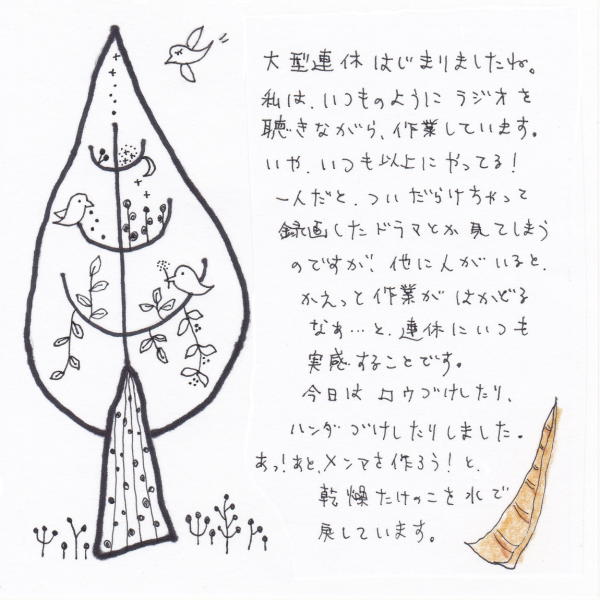 大型連休はじまりましたね。
私は、いつものようにラジオを
聴きながら、作業しています。
いや、いつも以上にやってる!
一人だと、ついだらけちゃって
録画したドラマとか見てしまう
のですが、他に人がいると、
かえって作業がはかどる
なぁ…と、連休にいつも
実感することです。
今日はロウづけしたり、
ハンダづけしたりしました。
あっ!あと、メンマを作ろう!と、
乾燥たけのこを水で
戻しています。